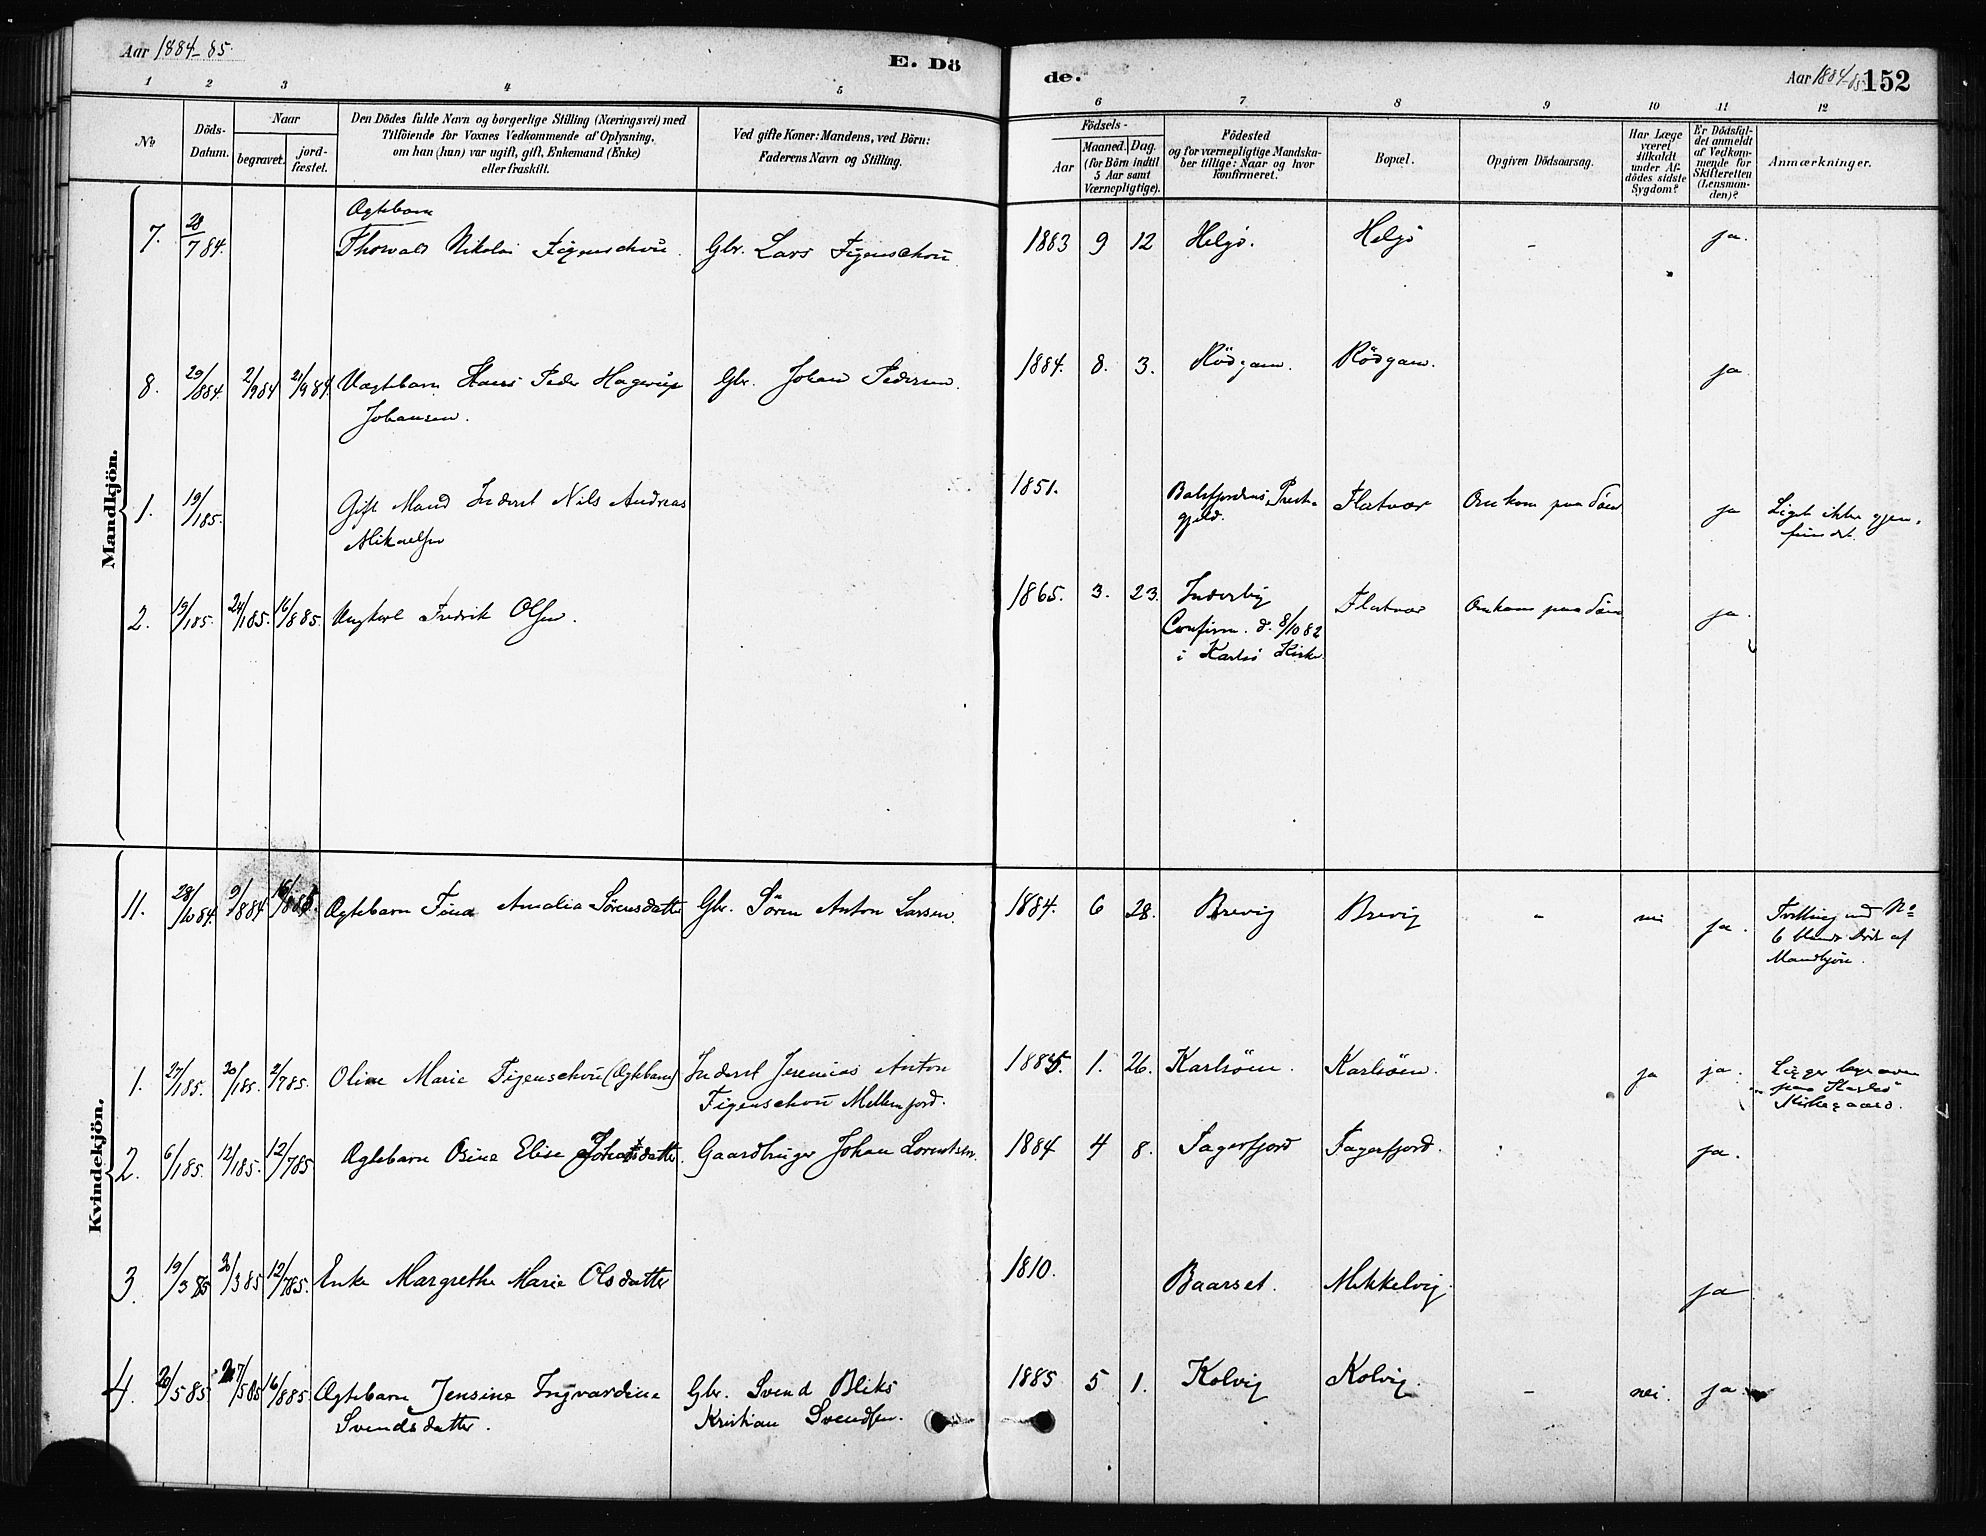 Aar 1884-85.
E. Dö
de.
Aar 1884-85
152
1 2 3 4 5 6 7 8 9 10 11 12
No
Döds-
Datum.
Naar
begravet.
jord-
fæstet.
Den Dödes fulde Navn og borgerlige Stilling (Næringsvei) med
Tilföiende for Voxnes Vedkommende af Oplysning,
om han (hun) var ugift, gift, Enkemand (Enke)
eller fraskilt.
Ved gifte Koner: Mandens, ved Börn:
Faderens Navn og Stilling.
Födsels-
Aar
Maaned. Dag.
(for Börn indtil
5 Aar samt
Værnepligtige).
Födested
og for værnepligtige Mandska-
ber tillige: Naar og hvor
konfirmeret.
Bopæl.
Opgiven Dödsaarsag.
Har Læge
været
tilkaldt
under Af-
dödes sidste
Sygdom?
Er Dödsfal-
det anmeldt
af Vedkom-
mende for
Skifteretten
(Lensman-
den)?
Anmærkninger.
Mandkjön.
Ægtebarn
7. 28/7 84. Thorvald Nikolai Figenschou. Gbr. Lars Figenschou. 1883 9 12 Helgö. Helgö - ja.
8. 29/8 84. 2/9 84 21/9 84. Uægtebarn Hans Peder Hagerup Gbr. Johan Pedersen. 1884. 8. 3. Rödgam. Rödgam. ja
Johansen.
1. 19/1 85. Gift Mand Inderst Nils Andreas 1851. Balsfjordens Prest- Flatvær Omkom paa Söen ja Liget ikke gjen-
Mikaelsen gjeld. fundet.
2. 19/1 85. 24/1 85. 16/8 85. Ungkarl Fredrik Olsen. 1865. 3. 23. Inderby Flatvær Omkom paa Söen ja.
Confirm. d. 8/10 82
i Karlsö Kirke.
Kvindekjön.
11. 28/10 84. 9/8 84 16/8 85. Ægtebarn Amalia Sörensdatter Gbr. Sören Anton Larsen. 1884. 6 28. Brevig Brevig - nei ja. Tvilling med No
6 blandt döde af
Mandkjön.
1. 27/1 85. 30/1 85. 2/7 85. Oline Marie Figenschou (Ægtebarn) Inderst Jeremias Anton 1885. 1. 26. Karlsöen Karlsöen. ja ja. Ligger begraven
Figenschou Mellemjord. paa Karlsö
Kirkegaard.
2. 6/1 85. 12/1 85. 12/7 85. Ægtebarn Osine Elise Johansdatter. Gaardbruger Johan Lorentsen. 1884 4 8. Fagerfjord Fagerfjord. ja.
3. 19/3 85 30/3 85 12/7 85. Enke Margrethe Marie Olsdatter 1810. Baarset. Mikkelvig. ja
4. 26/5 85 27/5 85 16/8 85 Ægtebarn Jensine Ingvardine Gbr. Svend Bliks 1885 5 1. Kolvig Kolvig. - nei. ja.
Svendsdatter. Kristian Svendsen.